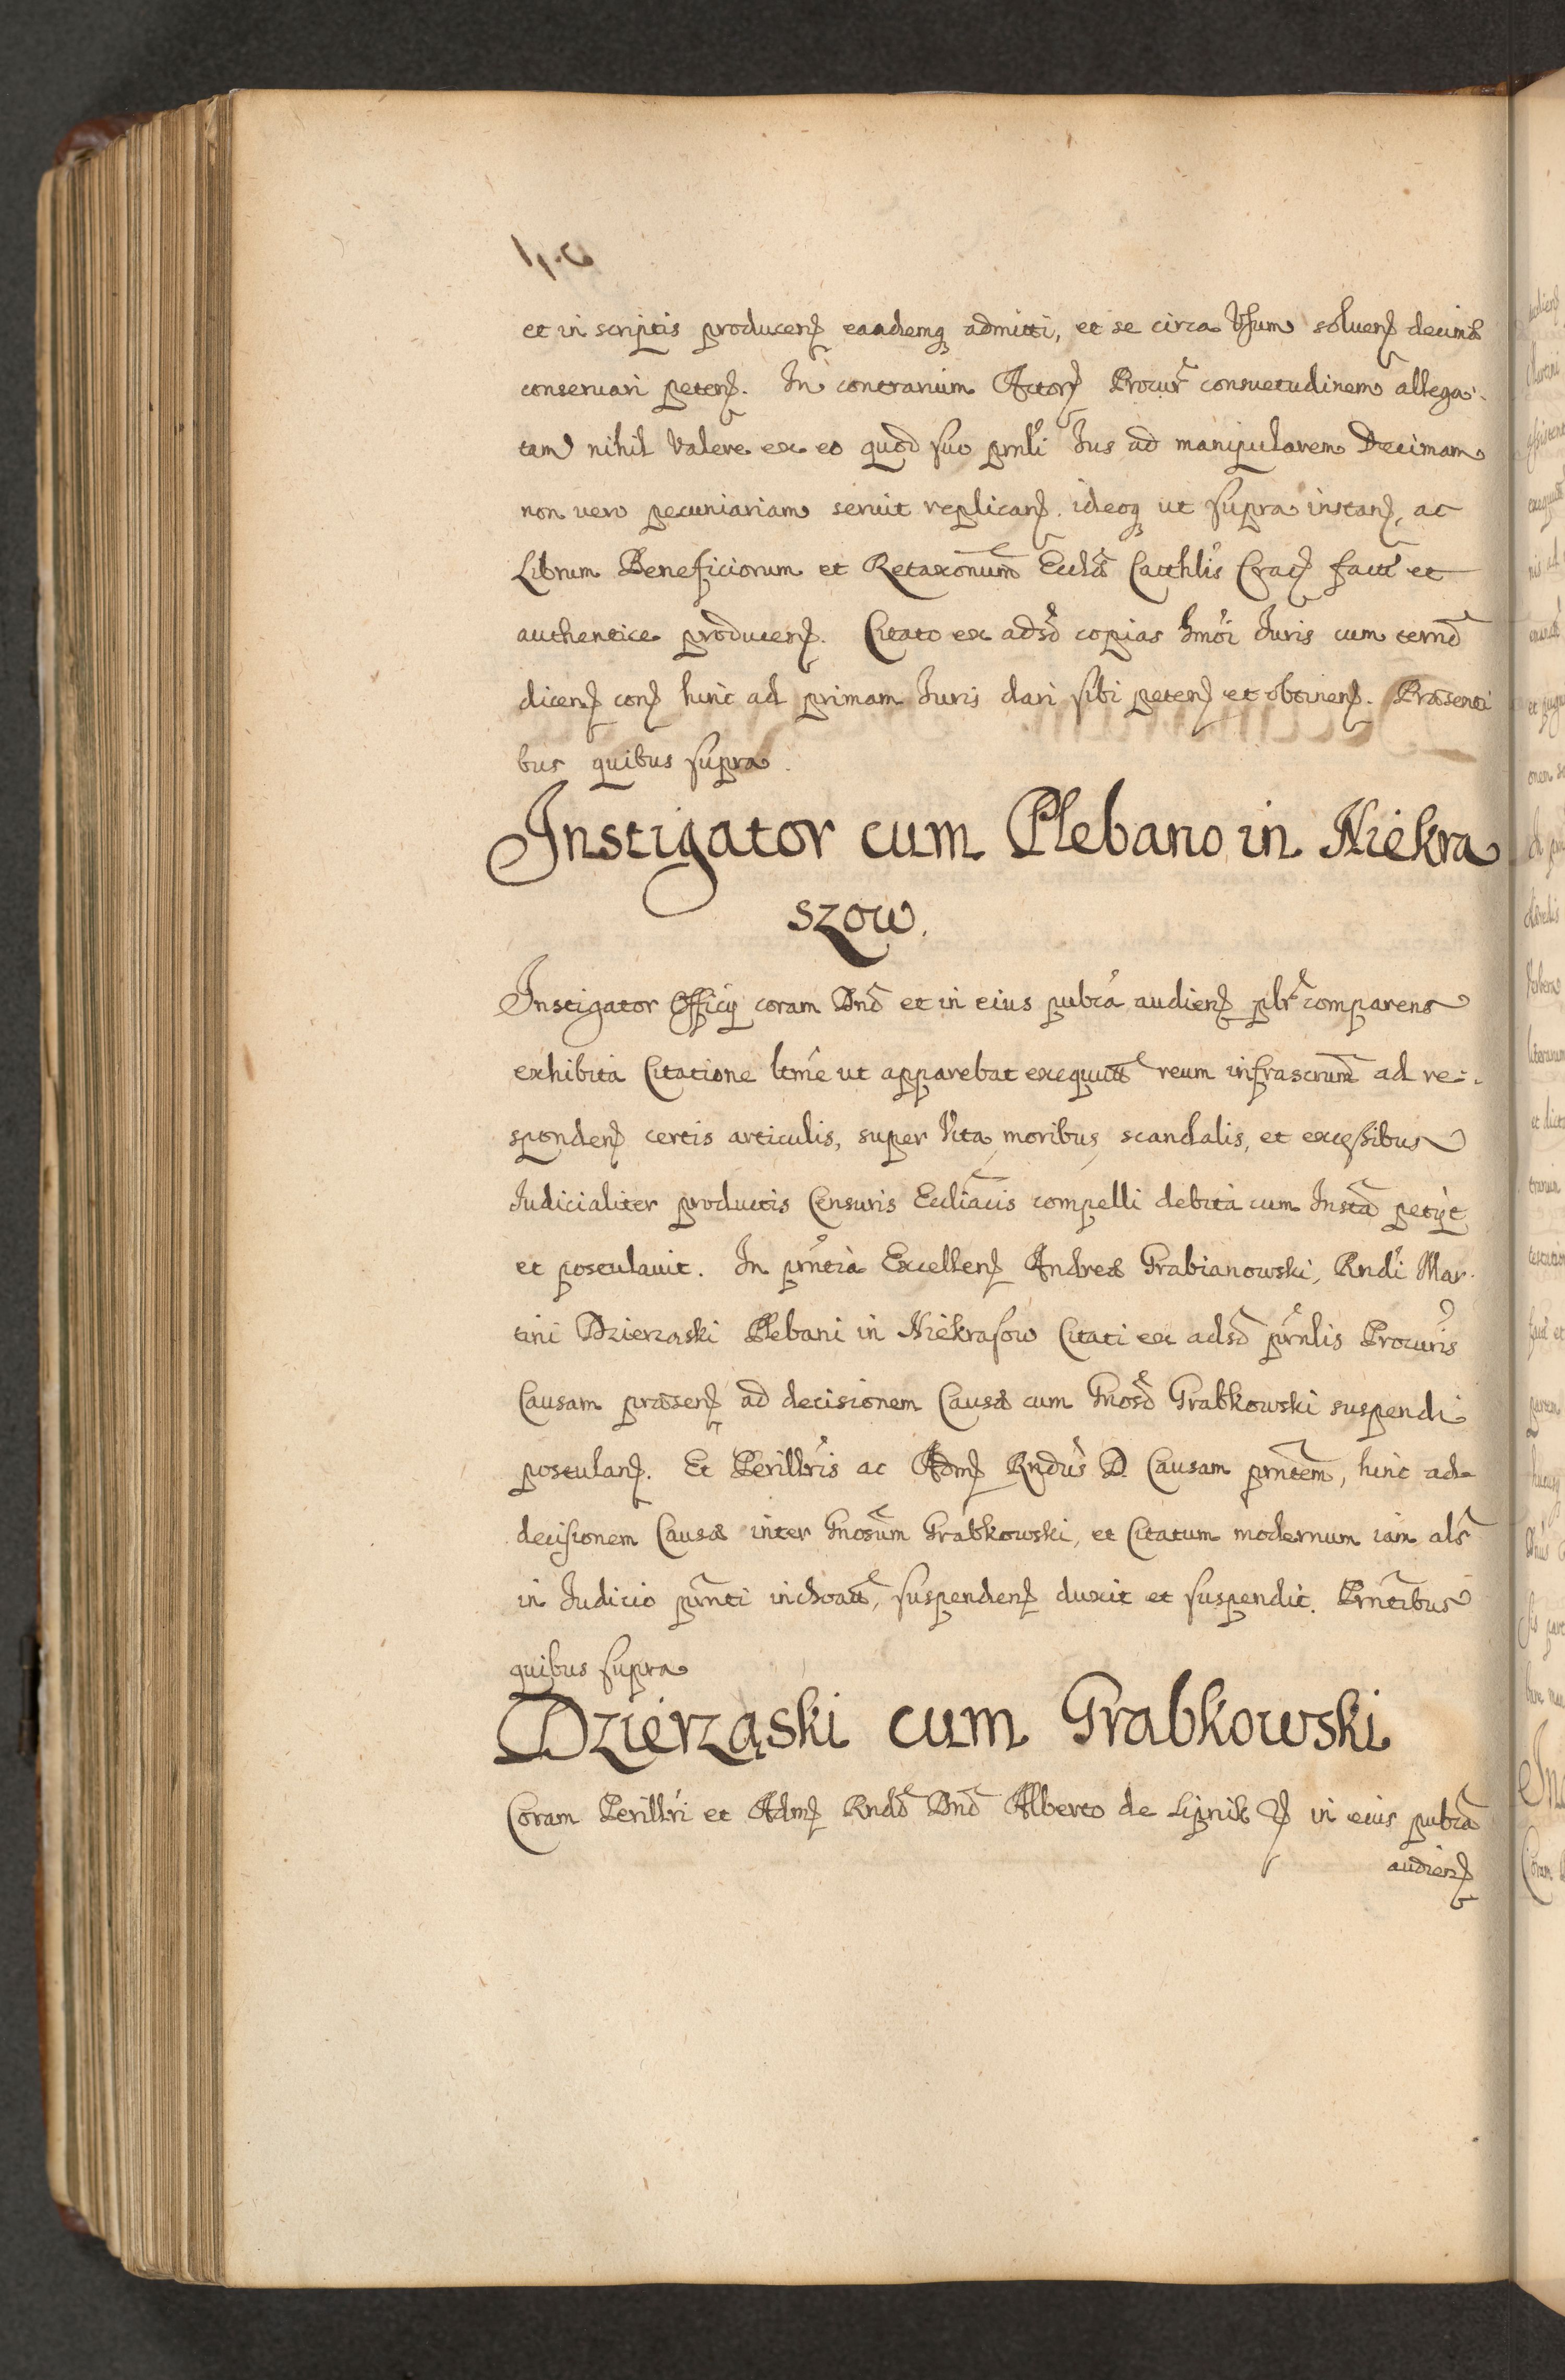 et in scriptis producen̄ eandemq; admitti, et se circa Vsum soluen̄ decimæ
conseruari peten̄. In contrarium Actor̄ Procur̃ consuetudinem allega-
tam nihil Valere ex eo quod suo prnli Ius ad manipularem Decimam
non uero pecuniariam seruit replican̄. ideoq; ut supra instan̄, ac
Librum Beneficiorum et Retaxonum Ecclæ Catthlis Crac̄ factt et
authentice producen̄. Citato ex adso copias hmoi Iuris cum termo
dicen̄ con̄ hinc ad primam Iuris dari sibi peten̄ et obtinen̄. Præsenti
bus quibus supra.
Instigator cum Plebano in Niekra
szow.
Instigator Officij coram Dno et in eius pubca audien̄ plr comparens
exhibita Citatione ltme ut apparebat exequuta reum infrascrum ad re-
sponden̄ certis articulis, super Vita, moribus, scandalis, et excessibus
Iudicialiter productis Censuris Eccliacis compelli debita cum Insta petijt
et postulauit. In pnntia Excellen̄ Andreæ Grabianowski, Rndi Mar-
tini Dzierząski Plebani in Niekrasow Citati ex adso prnlis Procuris
Causam præsen̄ ad decisionem Causæ cum Gnoso Grabkowski suspendi
postulan̄. Et Perillris ac Adm̄ Rndus D. Causam prntem, hinc ad
decisionem Causæ inter Gnosum Grabkowski, et Citatum modernum iam als
in Iudicio prnti inchoatæ, suspenden̄ duxit et suspendit. Prntibus
quibus supra
Dzierząski cum Grabkowski
Coram Perillri et Adm̄ Rndo Dno Alberto de Lipnik in eius pubca
audien̄